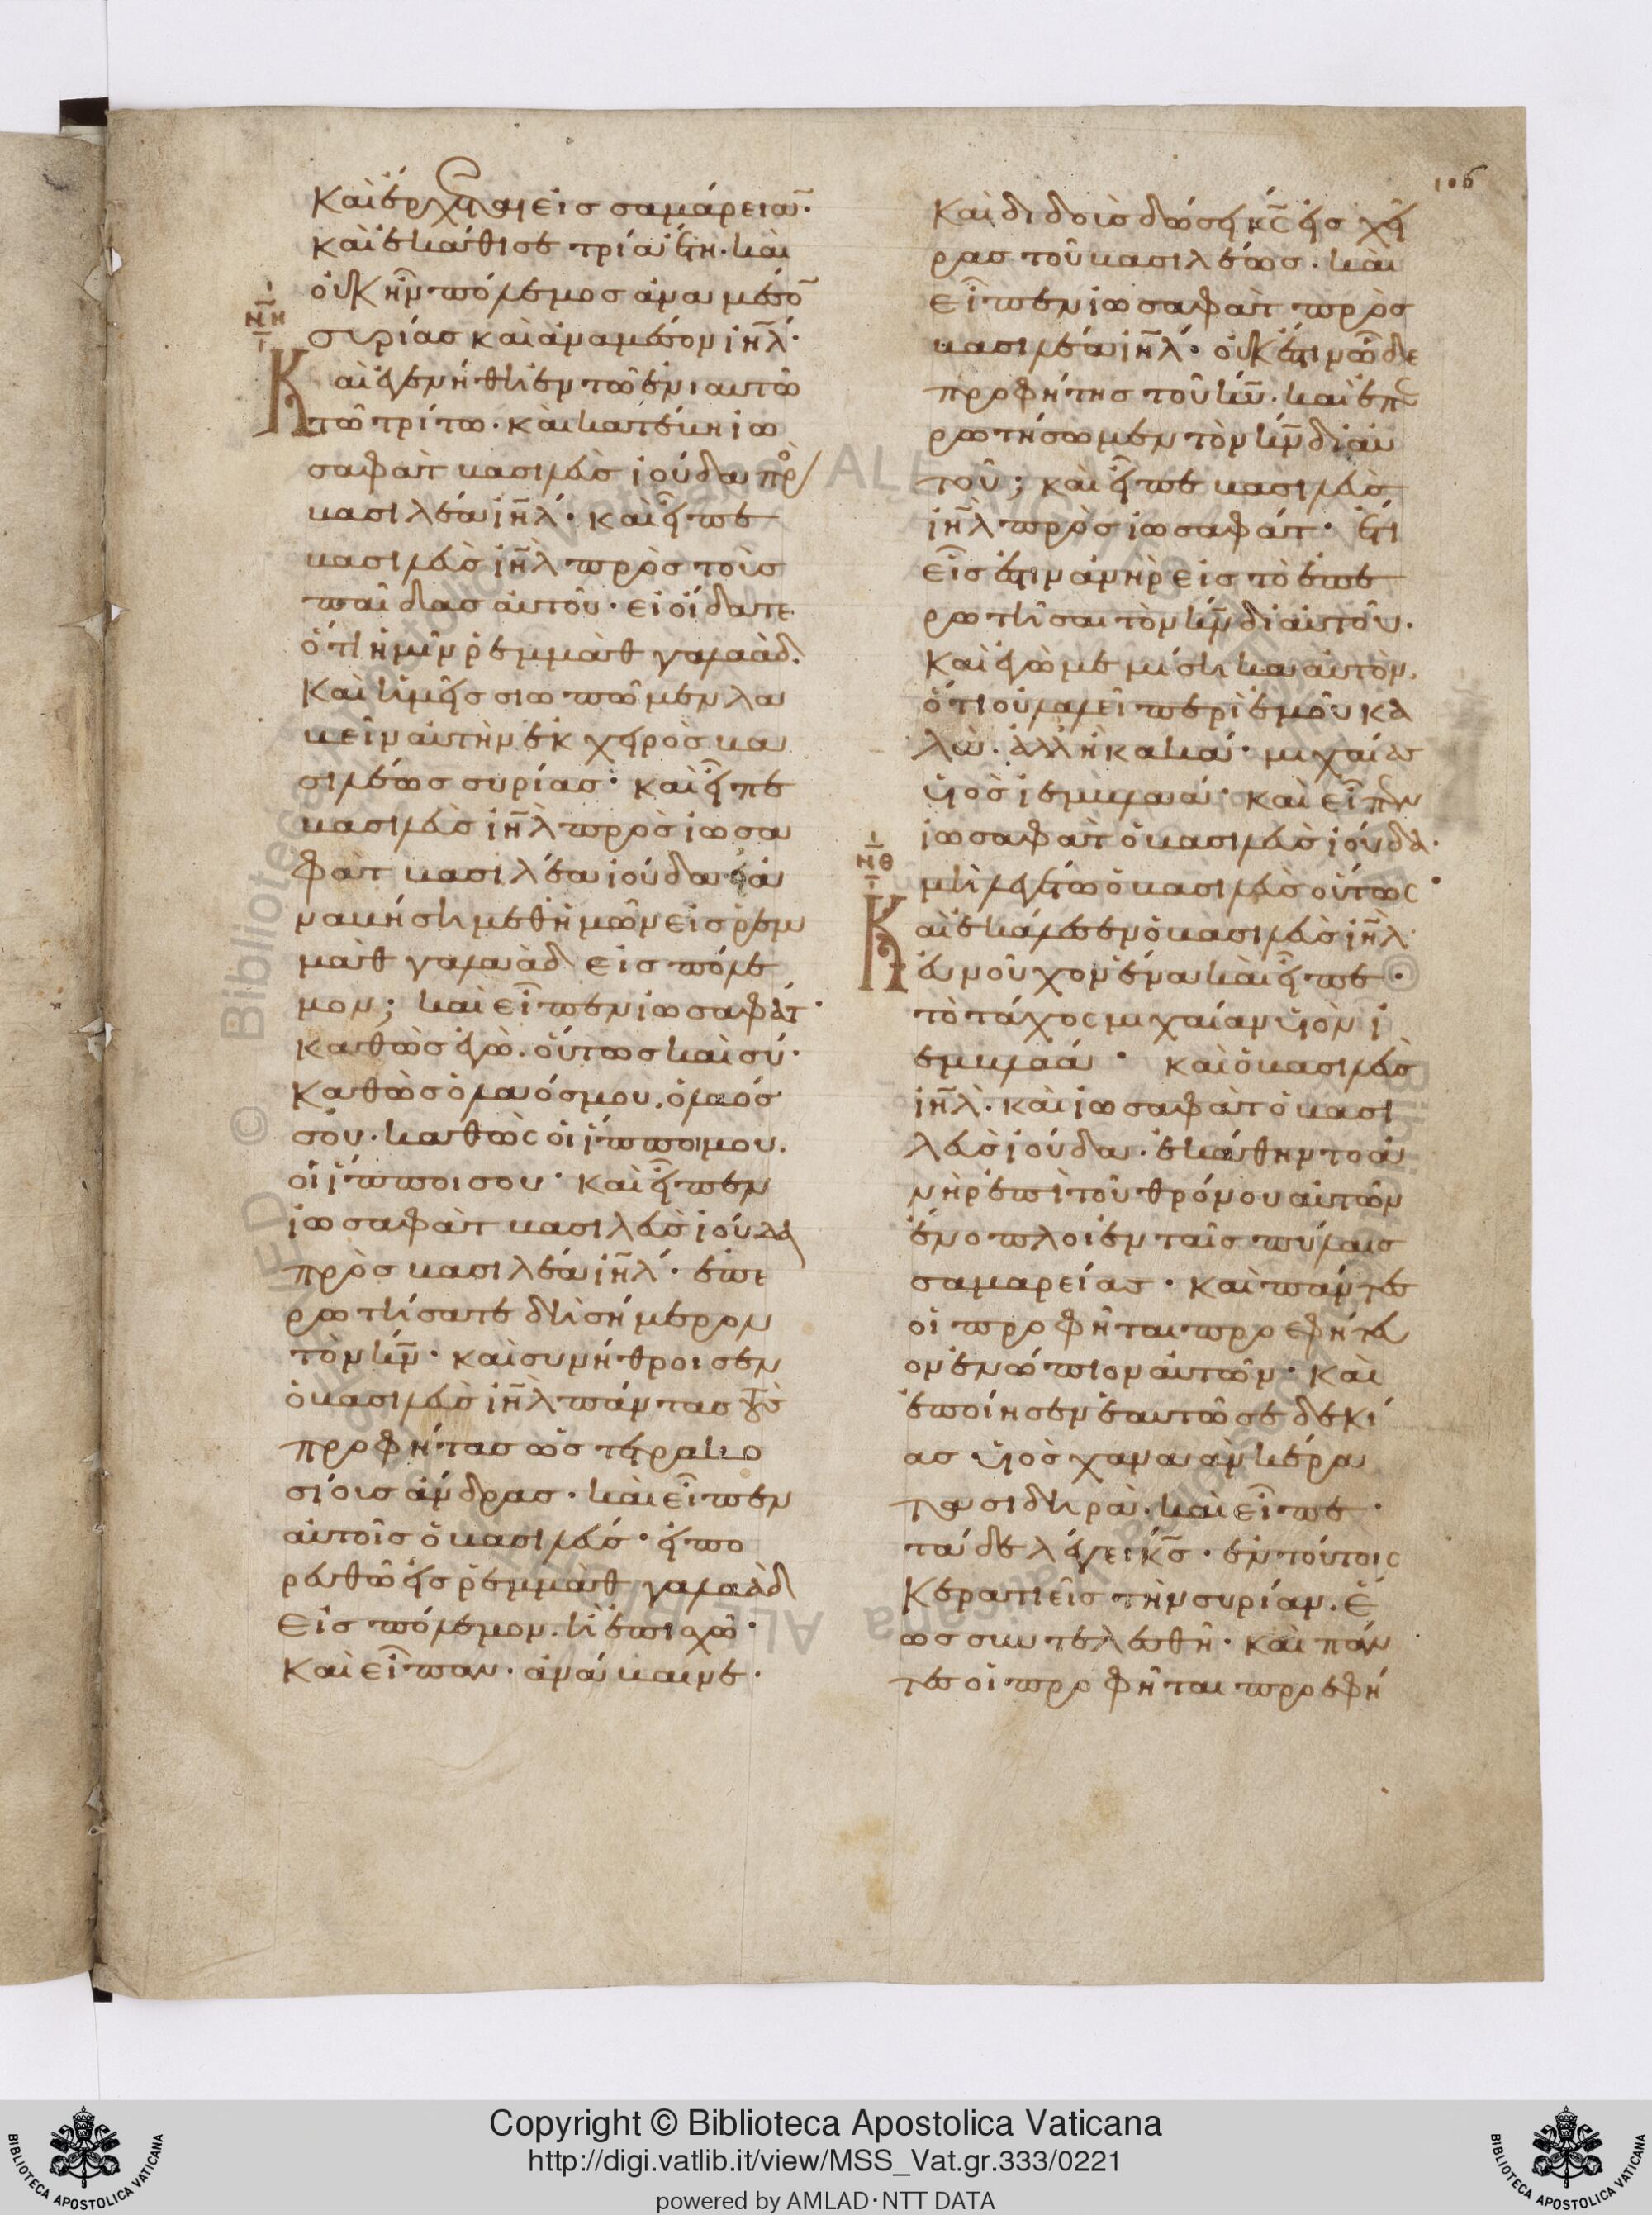 106
Καὶ ἔρχεται εἰς σαμάρειαν·
καὶ ἐκάθισε τρία ἔτη. καὶ
οὐκ ἦν πόλεμος ἀνα μέσον
συρίας καὶ ἀναμέσον ἰη̅λ·
ΝΗ
Καὶ ἐγενήθη ἐν τῶ ἐνιαυτῶ
τῶ τρίτω. καὶ κατέβη ἰω
σαφὰτ βασιλεὺς ἰούδα πρὸ
βασιλέα ἰη̅λ· καὶ εἶπε
βασιλεὺς ἰη̅λ πρὸς τοὺς
παῖδας αὐτοῦ· εἰ οἴδατε
ὅτι ἡμῖν ῥεμμὰθ γαλαὰδ.
Καὶ ἡμεῖς σιωπῶμεν λα
βεῖν αὐτὴν ἐκ χειρὸς βα
σιλέως συρίας· καὶ εἶπε
βασιλεὺς ἰη̅λ πρὸς ἰωσα
φὰτ βασιλέα ἰούδα· ἐὰ
ναβήση μεθ ἡμῶν εἰς ῥεμ
μαὰθ γαλαὰδ εἰς πόλε
μον; καὶ εἶπεν ἰωσαφάτ·
Καθὼς ἐγὼ. οὕτως καὶ σύ·
Καθὼς ὁ λαόσμου. ὁ λαός
σου. καθὼς οἱ ἵπποι μου.
οἱ ἵπποι σου· καὶ εἶπεν
ἰωσαφὰτ βασιλεὺς ἰούδα
πρὸς βασιλέα ἰη̅λ· ἐπε
ρωτήσατε δὴ σήμερον
τὸν κ̅ν· καὶ συνήθροισεν
ὁ βασιλεὺς ἰη̅λ πάντας τοὺς
προφήτας ὡς τετρακο
σίους ἄνδρας. καὶ εἶπεν
αὐτοῖς ὁ βασιλεύς· εἰ πο
ρευθῶ εἰς ῥεμμὰθ γαλαὰδ
εἰς πόλεμον. ἢ ἐπισχῶ·
Καὶ εἶπαν. ἀνάβαινε.
Καὶ διδοὺς δώσει κ̅ς εἰς χεῖ
ρας τοῦ βασιλέως. καὶ
εἶπεν ἰωσαφὰτ πρὸς
βασιλέα ἰη̅λ· οὐκ ἔστιν ὧδε
προφήτης τοῦ κ̅υ. καὶ ἐπε
ρωτήσωμεν τὸν κ̅ν δι αὐ
τοῦ; καὶ εἶπε βασιλεὺς
ἰη̅λ πρὸς ἰωσαφάτ· ἔτι
εἷς ἔστιν ἀνὴρ εἰς τὸ ἐπε
ρωτῆσαι τὸν κ̅ν δι αὐτοῦ.
Καὶ ἐγὼ μεμίσηκα αὐτὸν.
ὅτι οὐ λαλεῖ περὶ ἐμοῦ κα
λὼ. ἀλλ ἢ κακά· μιχαίας
υἱὸς ἰεμβλαά· καὶ εἶπεν
ἰωσαφὰτ ὁ βασιλεὺς ἰούδα·
μὴ λεγέτω ὁ βασιλεὺς οὕτως·
ΝΘ
Καὶ ἐκάλεσεν ὁ βασιλεὺς ἰη̅λ
εὐνοῦχον ἕνα καὶ εἶπε·
τὸ τάχος μιχαίαν υἱὸν ἰ
εμβλαά· καὶ ὁ βασιλεὺς
ἰη̅λ. καὶ ἰωσαφὰτ ὁ βασι
λεὺς ἰούδα. ἐκάθηντο ἀ
νὴρ ἐπὶ τοῦ θρόνου αὐτῶν
ἔνοπλοι ἐν ταῖς πύλαις
σαμαρείας· καὶ πάντες
οἱ προφῆται προεφήτευ
ον ἐνώπιον αὐτῶν· Καὶ
ἐποίησεν ἑαυτῶ σεδεκί
ας υἱὸς χαναὰν κέρα
τα σιδηρᾶ. καὶ εἶπε·
τάδε λέγει κ̅ς· ἐν τούτοις
Κερατιεῖς τὴν συρίαν. ἕ
ως συντελεσθῆ· καὶ πάν
τες οἱ προφῆται προεφή
Copyright © Biblioteca Apostolica Vaticana
http://digi.vatlib.it/view/MSS_Vat.gr.333/0221
powered by AMLAD·NTT DATA
BIBLIOTECA APOSTOLICA VATICANA
BIBLIOTECA APOSTOLICA VATICANA